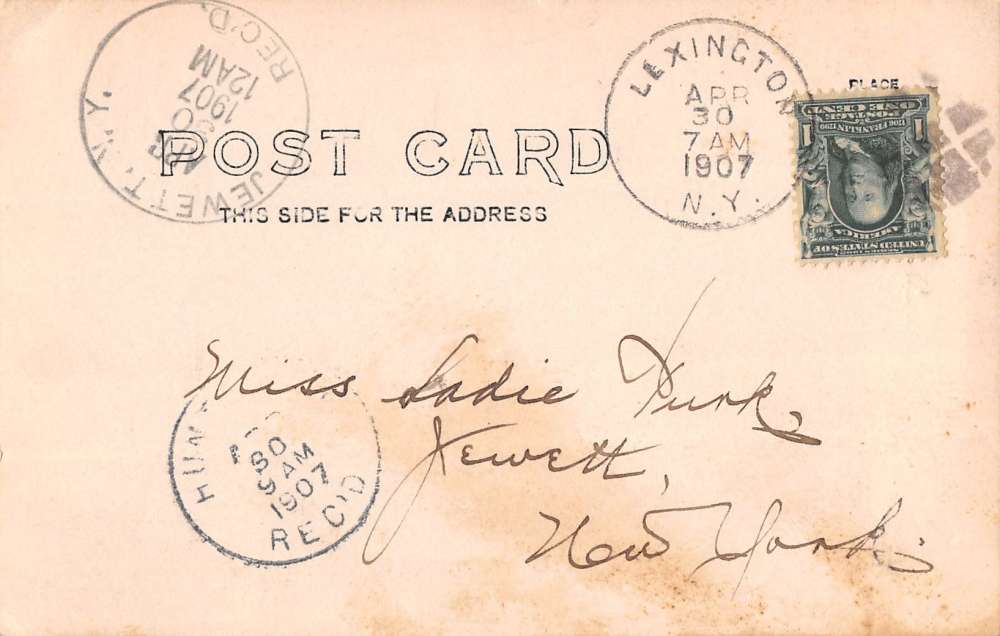 JEWETT, N.Y.
1907
12AM
REC'D.
LEXINGTON
APR
30
7 AM
1907
N.Y.
PLACE
POST CARD
THIS SIDE FOR THE ADDRESS
ONE CENT
POSTAGE
1706 FRANKLIN 1790
1 1
UNITED STATES OF
AMERICA
SERIES 1902
Miss Sadie
Jewett,
New York.
30
9 AM
1907
REC'D